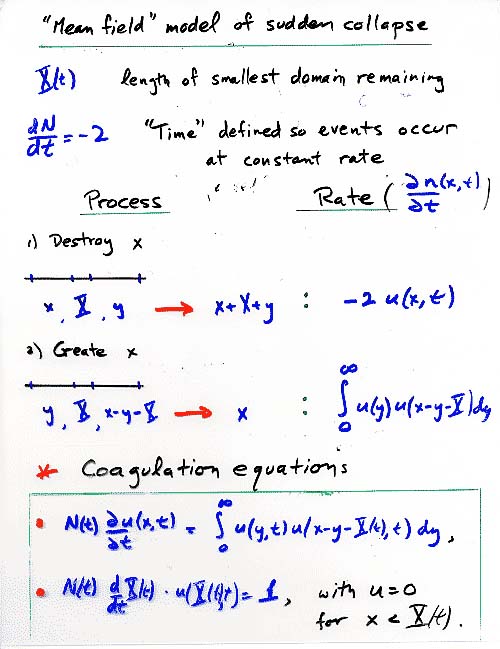 "Mean field" model of sudden collapse
X(t) length of smallest domain remaining
dN/dt = -2 "Time" defined so events occur
at constant rate
Process Rate (∂n(x,t)/∂t)
1) Destroy x
x, X, y → x+X+y : -2 u(x,t)
2) Create x
y, X, x-y-X → x : ∫₀^∞ u(y)u(x-y-X)dy
* Coagulation equations
• N(t) ∂u(x,t)/∂t = ∫₀^∞ u(y,t)u(x-y-X(t),t) dy,
• N(t) d/dt X(t) · u(X(t),t) = 1, with u=0
for x < X(t).